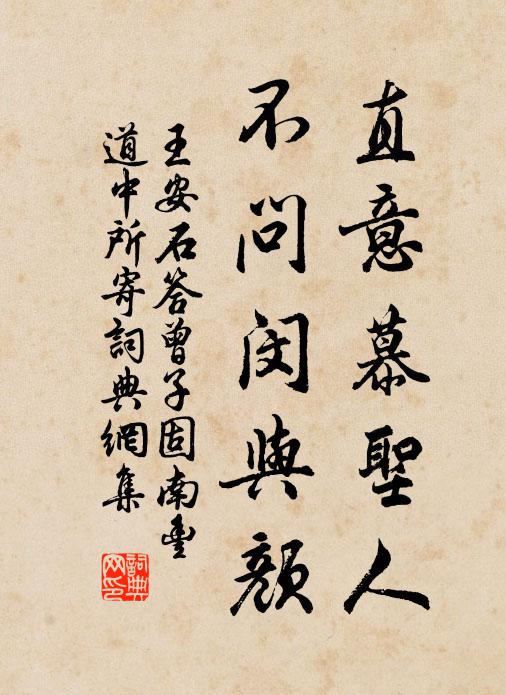 直意慕聖人
不問閔與顏
王安石答曾子固南豐
道中所寄詞典網集
詞典
网印